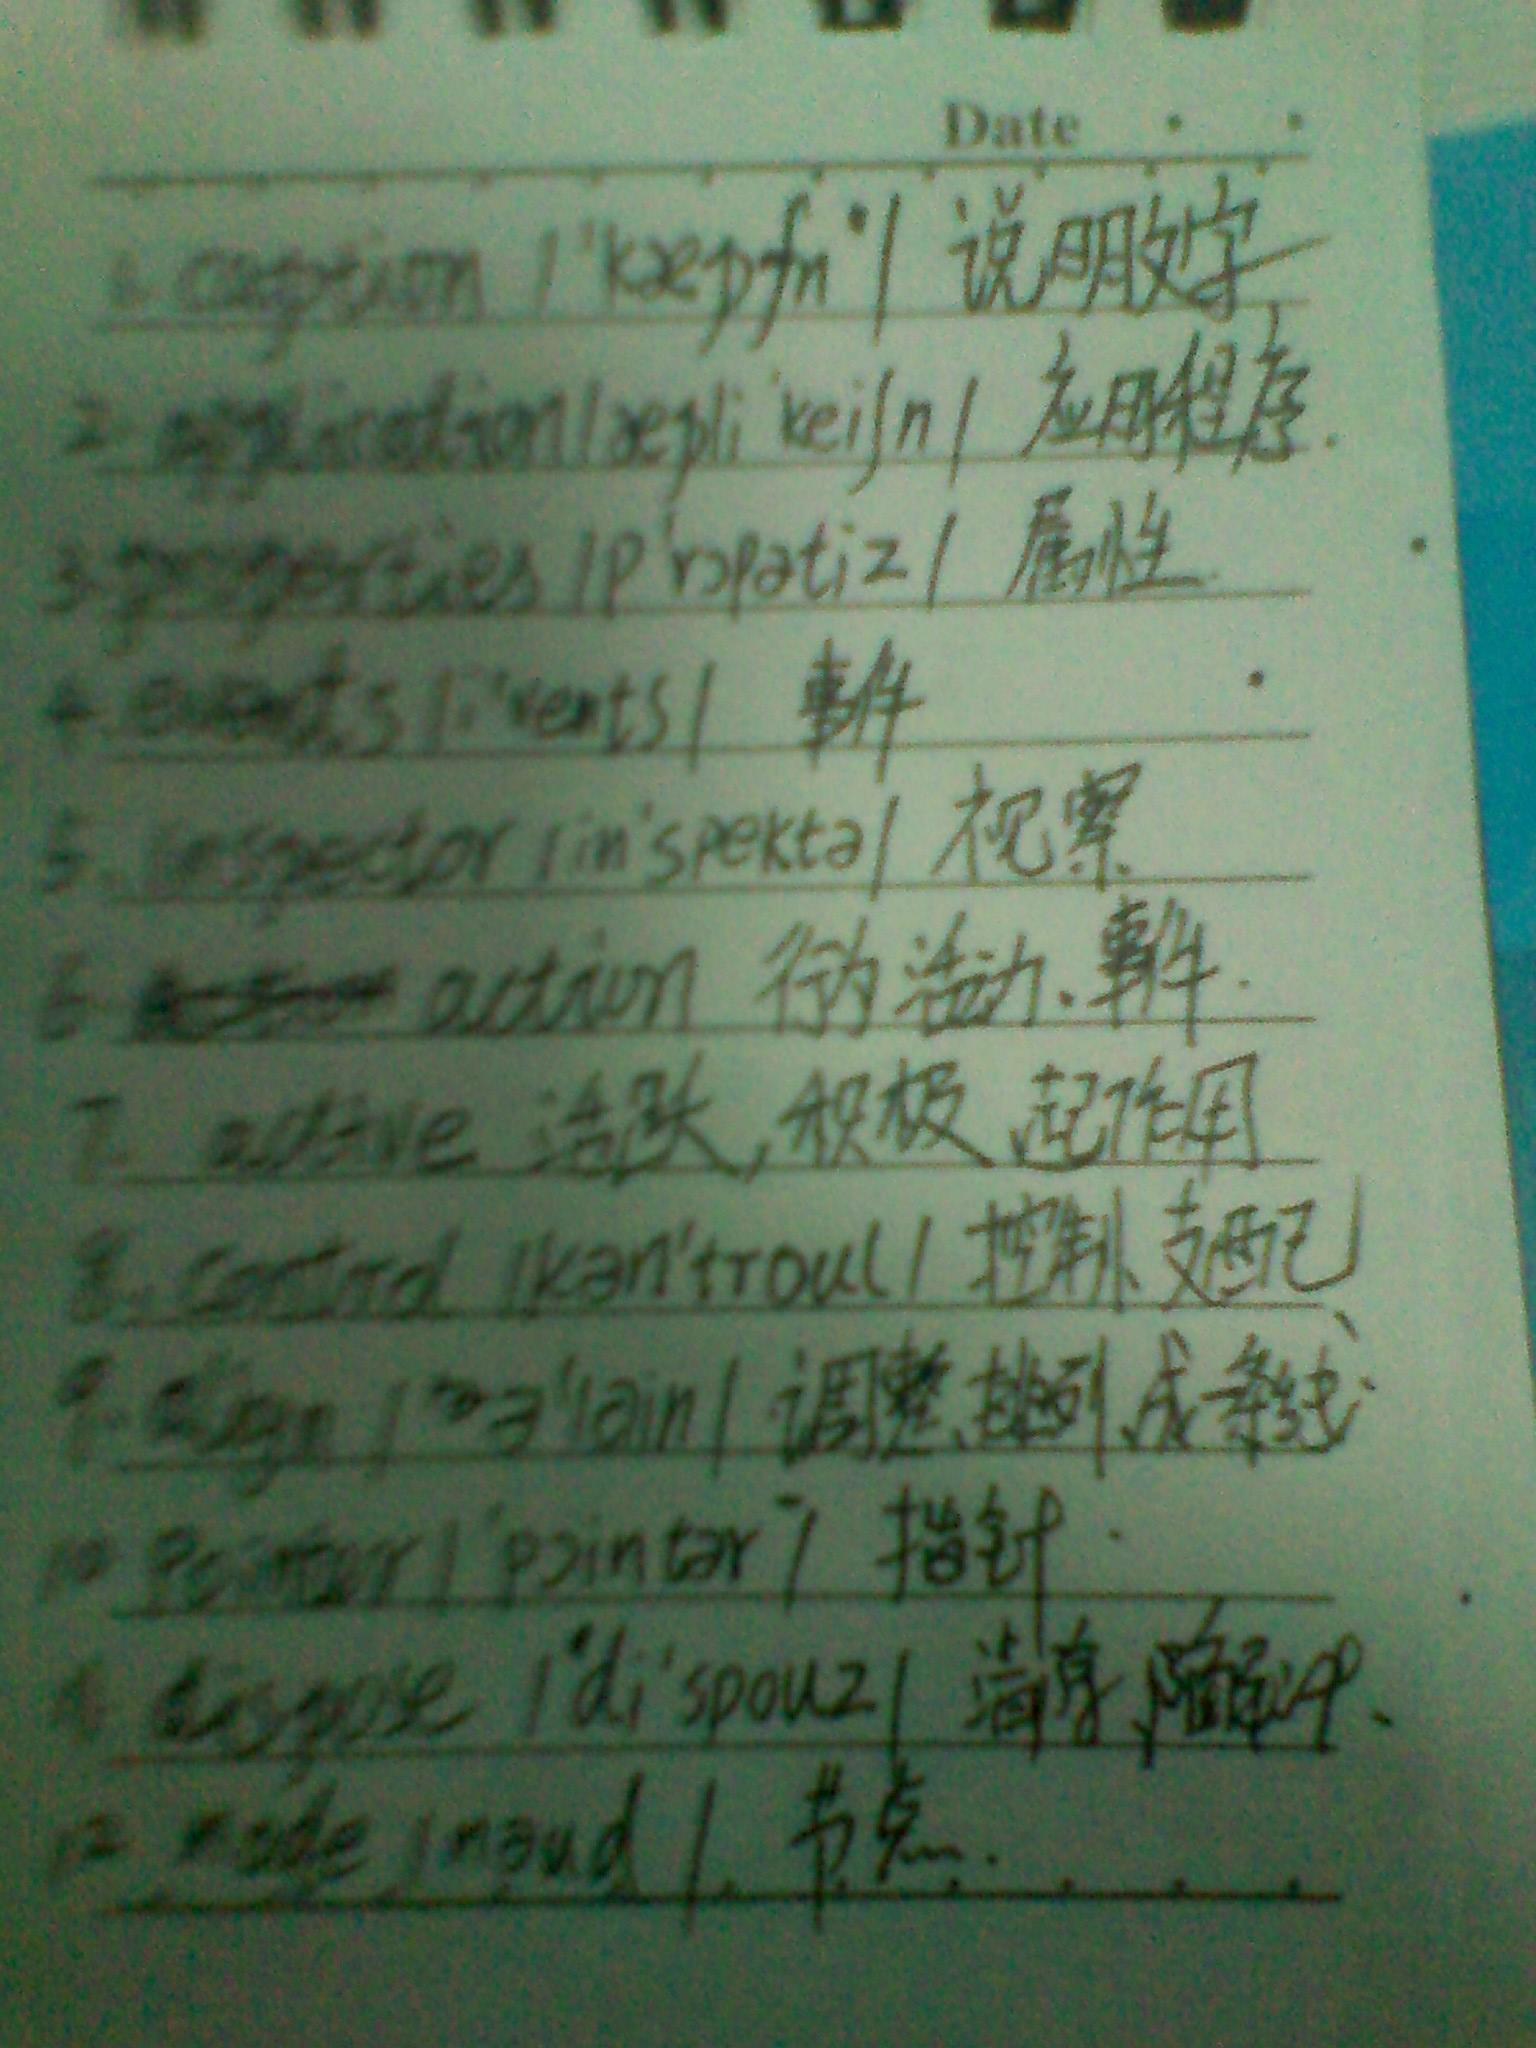 Date
1. caption /'kæpʃn/ 说明文字
2. application /æpli'keiʃn/ 应用程序.
3. properties /p'rɔpətiz/ 属性.
4. events /i'vents/ 事件
5. inspector /in'spektə/ 视察
6. action 行为 活动、事件.
7. active 活跃,积极、起作用
8. control /kən'troul/ 控制、支配、
9. align /ə'lain/ 调整、排列、成条线
10. Pointer /'pɔintər/ 指针.
11. dispose /di'spouz/ 清存、
12. node /nəud/ 节点.